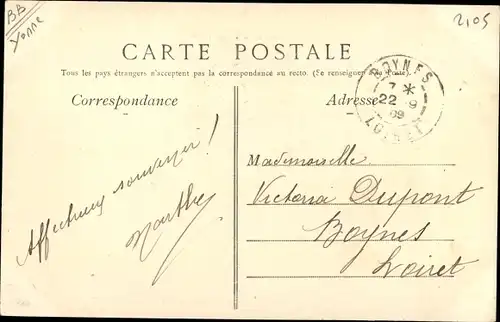 BB
Yonne
2105
CARTE POSTALE
Tous les pays étrangers n'acceptent pas la correspondance au recto. (Se renseigner à la Poste).
Correspondance
Adresse
BOYNES
7 *
22 9
09
LOIRET
Affectueux souvenir!
Marthe
Mademoiselle
Victoria Dupont
Boynes
Loiret